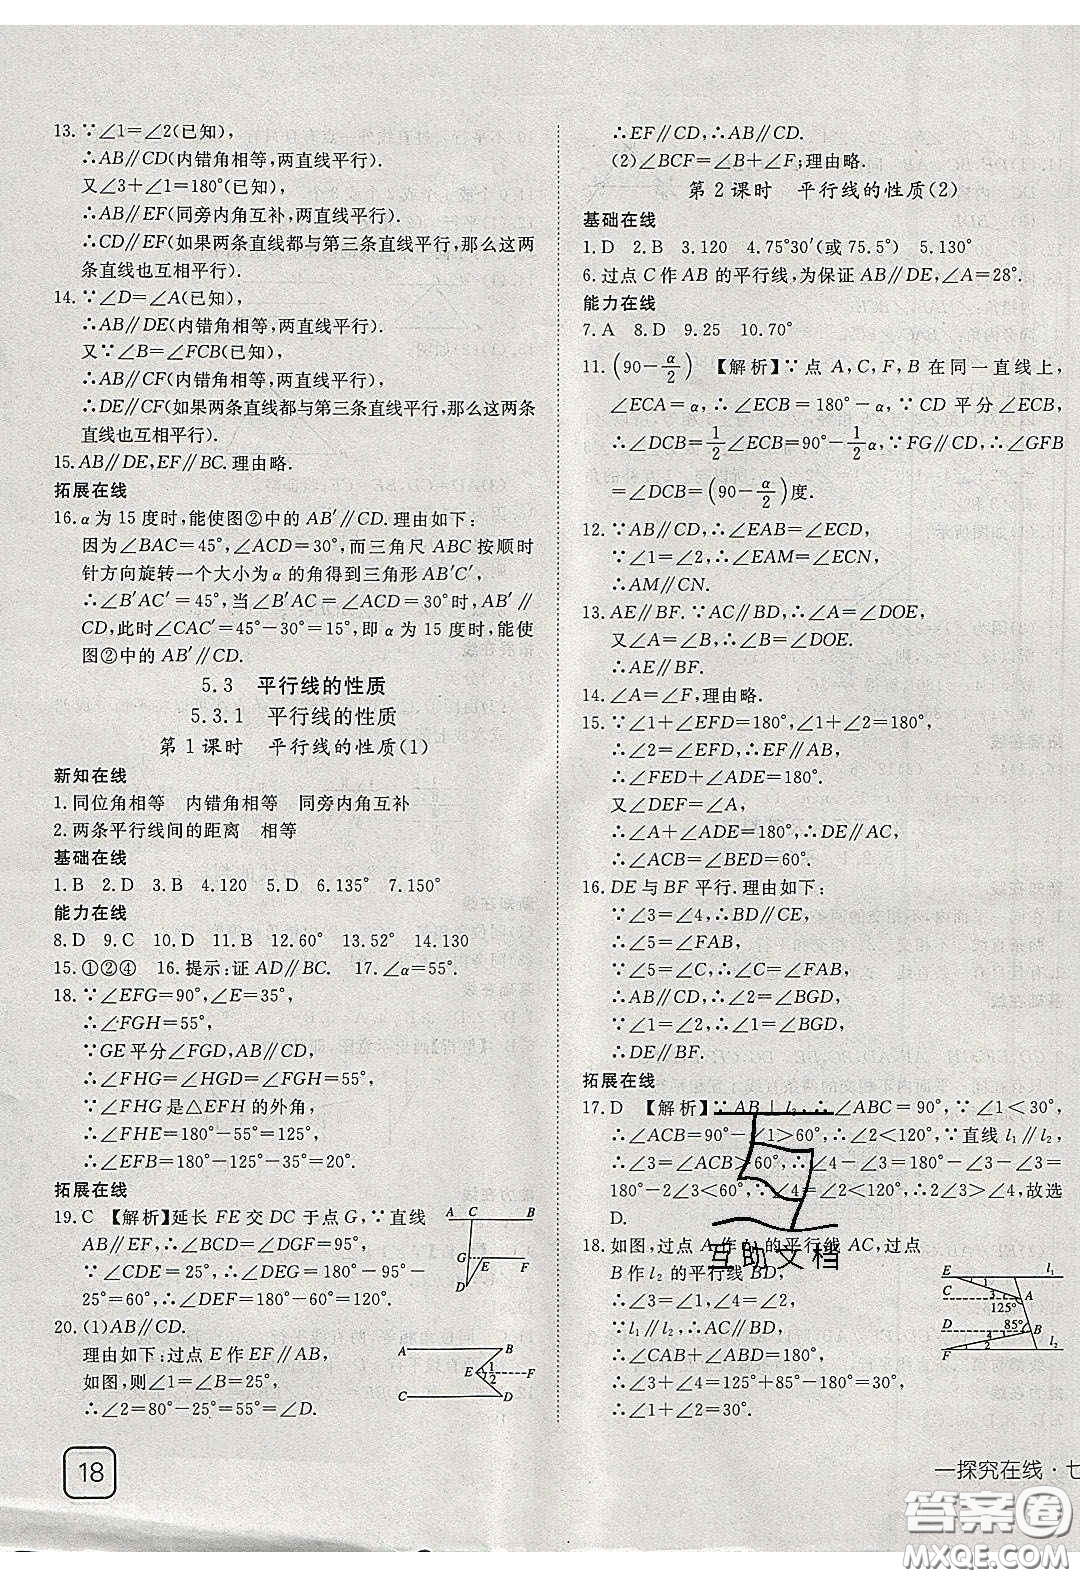 13.∵∠1=∠2(已知),
∴AB∥CD(内错角相等,两直线平行).
又∠3+∠1=180°(已知),
∴AB∥EF(同旁内角互补,两直线平行).
∴CD∥EF(如果两条直线都与第三条直线平行,那么这两
条直线也互相平行).
14.∵∠D=∠A(已知),
∴AB∥DE(内错角相等,两直线平行).
又∵∠B=∠FCB(已知),
∴AB∥CF(内错角相等,两直线平行).
∴DE∥CF(如果两条直线都与第三条直线平行,那么这两条
直线也互相平行).
15.AB∥DE,EF∥BC.理由略.
拓展在线
16.α为15度时,能使图②中的AB′∥CD.理由如下:
因为∠BAC=45°,∠ACD=30°,而三角尺ABC按顺时
针方向旋转一个大小为α的角得到三角形AB′C′,
∴∠B′AC′=45°,当∠B′AC=∠ACD=30°时,AB′∥
CD,此时∠CAC′=45°-30°=15°,即α为15度时,能使
图②中的AB′∥CD.
5.3 平行线的性质
5.3.1 平行线的性质
第1课时 平行线的性质(1)
新知在线
1.同位角相等 内错角相等 同旁内角互补
2.两条平行线间的距离 相等
基础在线
1.B 2.D 3.B 4.120 5.D 6.135° 7.150°
能力在线
8.D 9.C 10.D 11.B 12.60° 13.52° 14.130
15.①②④ 16.提示:证AD∥BC. 17.∠α=55°.
18.∵∠EFG=90°,∠E=35°,
∴∠FGH=55°,
∵GE平分∠FGD,AB∥CD,
∴∠FHG=∠HGD=∠FGH=55°,
∵∠FHG是△EFH的外角,
∴∠FHE=180°-55°=125°,
∴∠EFB=180°-125°-35°=20°.
拓展在线
19.C 【解析】延长FE交DC于点G,∵直线
AB∥EF,∴∠BCD=∠DGF=95°,
∵∠CDE=25°,∴∠DEG=180°-95°-
25°=60°,∴∠DEF=180°-60°=120°.
A C B
G E F
D
20.(1)AB∥CD.
理由如下:过点E作EF∥AB,
如图,则∠1=∠B=25°,
∴∠2=80°-25°=55°=∠D.
A B
E 1 2 F
C D
18
∴EF∥CD,∴AB∥CD.
(2)∠BCF=∠B+∠F;理由略.
第2课时 平行线的性质(2)
基础在线
1.D 2.B 3.120 4.75°30′(或75.5°) 5.130°
6.过点C作AB的平行线,为保证AB∥DE,∠A=28°.
能力在线
7.A 8.D 9.25 10.70°
11.(90-α/2) 【解析】∵点A,C,F,B在同一直线上,
∠ECA=α,∴∠ECB=180°-α,∵CD平分∠ECB,
∴∠DCB=1/2∠ECB=90°-1/2α,∵FG∥CD,∴∠GFB
=∠DCB=(90-α/2)度.
12.∵AB∥CD,∴∠EAB=∠ECD,
∵∠1=∠2,∴∠EAM=∠ECN,
∴AM∥CN.
13.AE∥BF.∵AC∥BD,∴∠A=∠DOE,
又∠A=∠B,∴∠B=∠DOE.
∴AE∥BF.
14.∠A=∠F,理由略.
15.∵∠1+∠EFD=180°,∠1+∠2=180°,
∴∠2=∠EFD,∴EF∥AB.
∴∠FED+∠ADE=180°.
又∵∠DEF=∠A,
∴∠A+∠ADE=180°,∴DE∥AC,
∴∠ACB=∠BED=60°.
16.DE与BF平行.理由如下:
∵∠3=∠4,∴BD∥CE,
∴∠5=∠FAB,
∵∠5=∠C,∴∠C=∠FAB,
∴AB∥CD,∴∠2=∠BGD,
∵∠1=∠2,∴∠1=∠BGD,
∴DE∥BF.
拓展在线
17.D 【解析】∵AB⊥l₃,∴∠ABC=90°,∵∠1<30°,
∴∠ACB=90°-∠1>60°,∴∠2<120°,∵直线l₁∥l₂,
∴∠3=∠ACB>60°,∴∠4-∠3=
180°-∠2<60°,∵∠4=∠2<120°,∴2∠3>∠4,故选
D.
18.如图,过点A作l₁的平行线AC,过点
B作l₂的平行线BD,
∴∠3=∠1,∠4=∠2,
∵l₁∥l₂,∴AC∥BD,
∴∠CAB+∠ABD=180°,
∴∠3+∠4=125°+85°-180°=30°,
∴∠1+∠2=30°.
E 1 l₁
C 3 A
125°
D 85° B
4
F 2 l₂
互助文档
一探究在线·七
答案圈
MXQE.COM